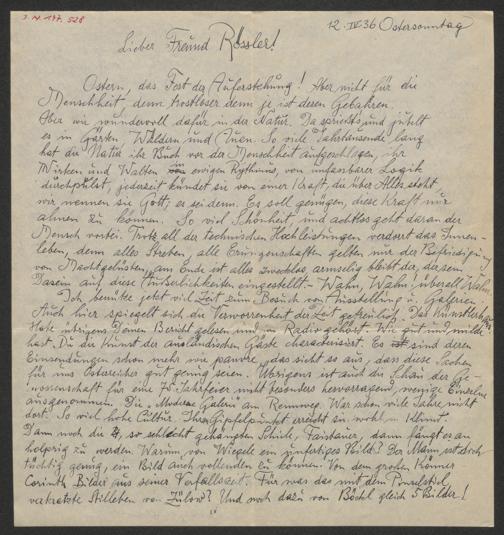 J.N. 147.528
12. IV 36 Ostersonntag
Lieber Freund Rössler!
Ostern, das Fest der Auferstehung! Aber nicht für die
Menschheit, denn trostloser denn je ist deren Gebahren.
Aber wie wundervoll dafür in der Natur. Da spriesst und jubelt
es in Gärten Wäldern und Auen. So viele Jahrtausende lang
hat die Natur ihr Buch vor der Menschheit aufgeschlagen, ihr
Wirken und Walten von ewigen Rythmus, von unfassbarer Logik
durchpulst, jederzeit kündet sie von einer Kraft, die über Alles steht
wir nennen sie Gott, er sei denn. Es soll genügen, diese Kraft nur
ahnen zu können. So viel Schönheit und achtlos geht daran der
Mensch vorbei. Trotz all der technischen Hochleistungen verdorrt das Innen-
leben, denn alles Streben, alle Errungenschaften gelten nur der Befriedigung
von Machtgelüsten, am Ende ist alles zwecklos, armselig bleibt der, dessen
Dasein auf diese Äusserlichkeiten eingestellt. – Wahn, Wahn, überall Wahn
Ich benütze jetzt viel Zeit zum Besuch von Ausstellung u. Galerien.
Auch hier spiegelt sich die Verworrenheit der Zeit getreulich. Das Künstlerhaus
Habe übrigens Deinen Bericht gelesen und im Radio gehört. Wie gut und milde
hast Du die Kunst der ausländischen Gäste charakterisiert. Es sind deren
Einsendungen schon mehr wie pauvre, das sieht so aus, dass diese Sachen
für uns Österreicher gut genug seien. Übrigens ist auch die Schau der Ge-
nossenschaft für eine 75 Jahrfeier nicht besonders hervorragend, wenige Einzelne
ausgenommen. Die Moderne Galerie am Rennweg. War schon viele Jahre nicht
dort. So viel hohe Cultur. Ihren Gipfelpunkt erreicht sie wohl in Klimt.
Dann noch die so schlecht gehängten Schiele, Faistauer, dann fängt es an
holperig zu werden. Warum von Wiegele ein unfertiges Bild? Der Mann ist doch
tüchtig genug, ein Bild auch vollenden zu können. Von dem großen Könner
Corinth Bilder aus seiner Verfallszeit. Für was das mit dem Pinselstiel
verkratzte Stilleben von Zülow? Und noch dazu von Böckl gleich 5 Bilder!